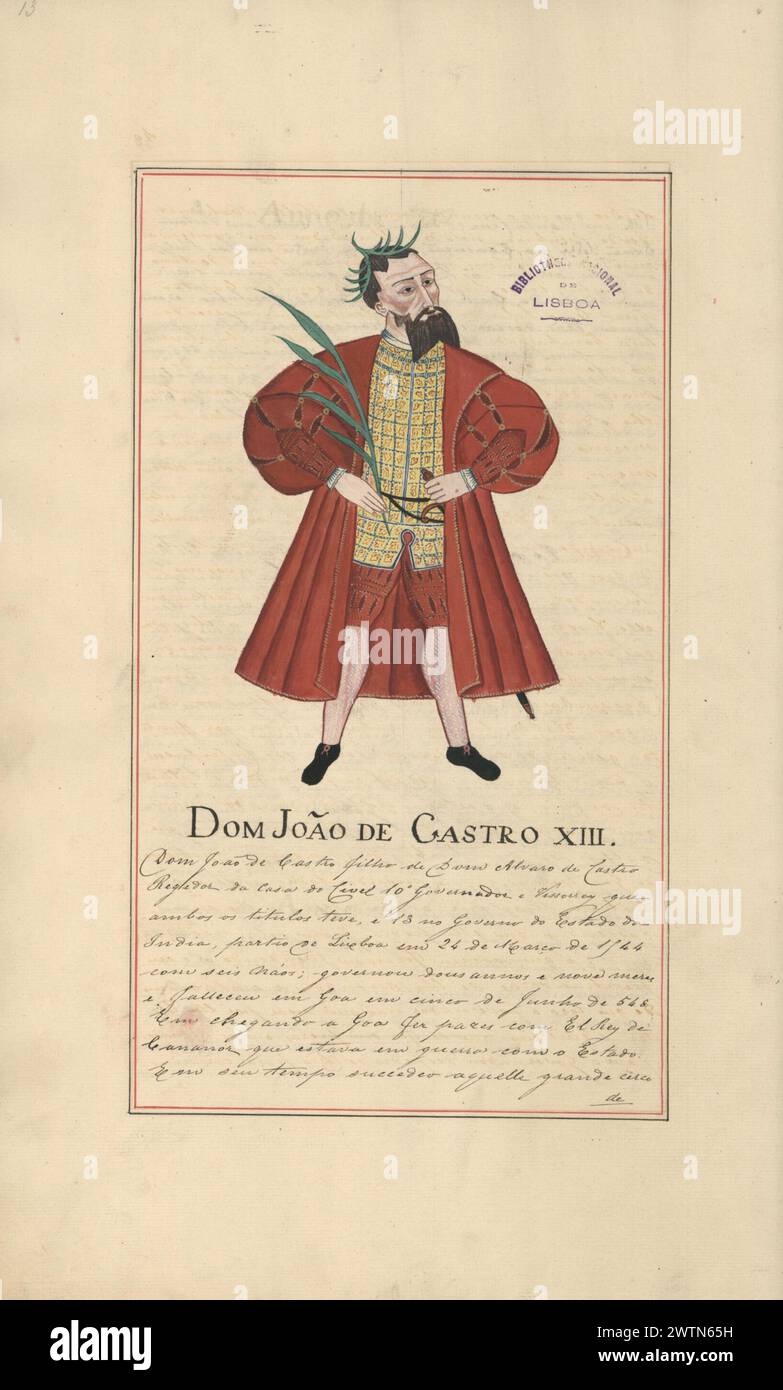 13
BIBLIOTHECA NACIONAL
DE
LISBOA
DOM JOÃO DE CASTRO XIII.
Dom João de Castro filho de Dom Alvaro de Castro
Regedor da casa do Civel 10º Governador e Visorrey que
ambos os titulos teve, e 13 no Governo do Estado da
India, partio de Lixboa em 24 de Março de 1544
com seis náos; governou dous annos e nove mezes
e falleceu em Goa em cinco de Junho de 548
Em chegando a Goa fez pazes com El Rey de
Cananor que estava em guerra com o Estado.
Em seu tempo succedeo aquelle grande cerco
de
alamy
alamy
Image ID: 2WTN65H
www.alamy.com